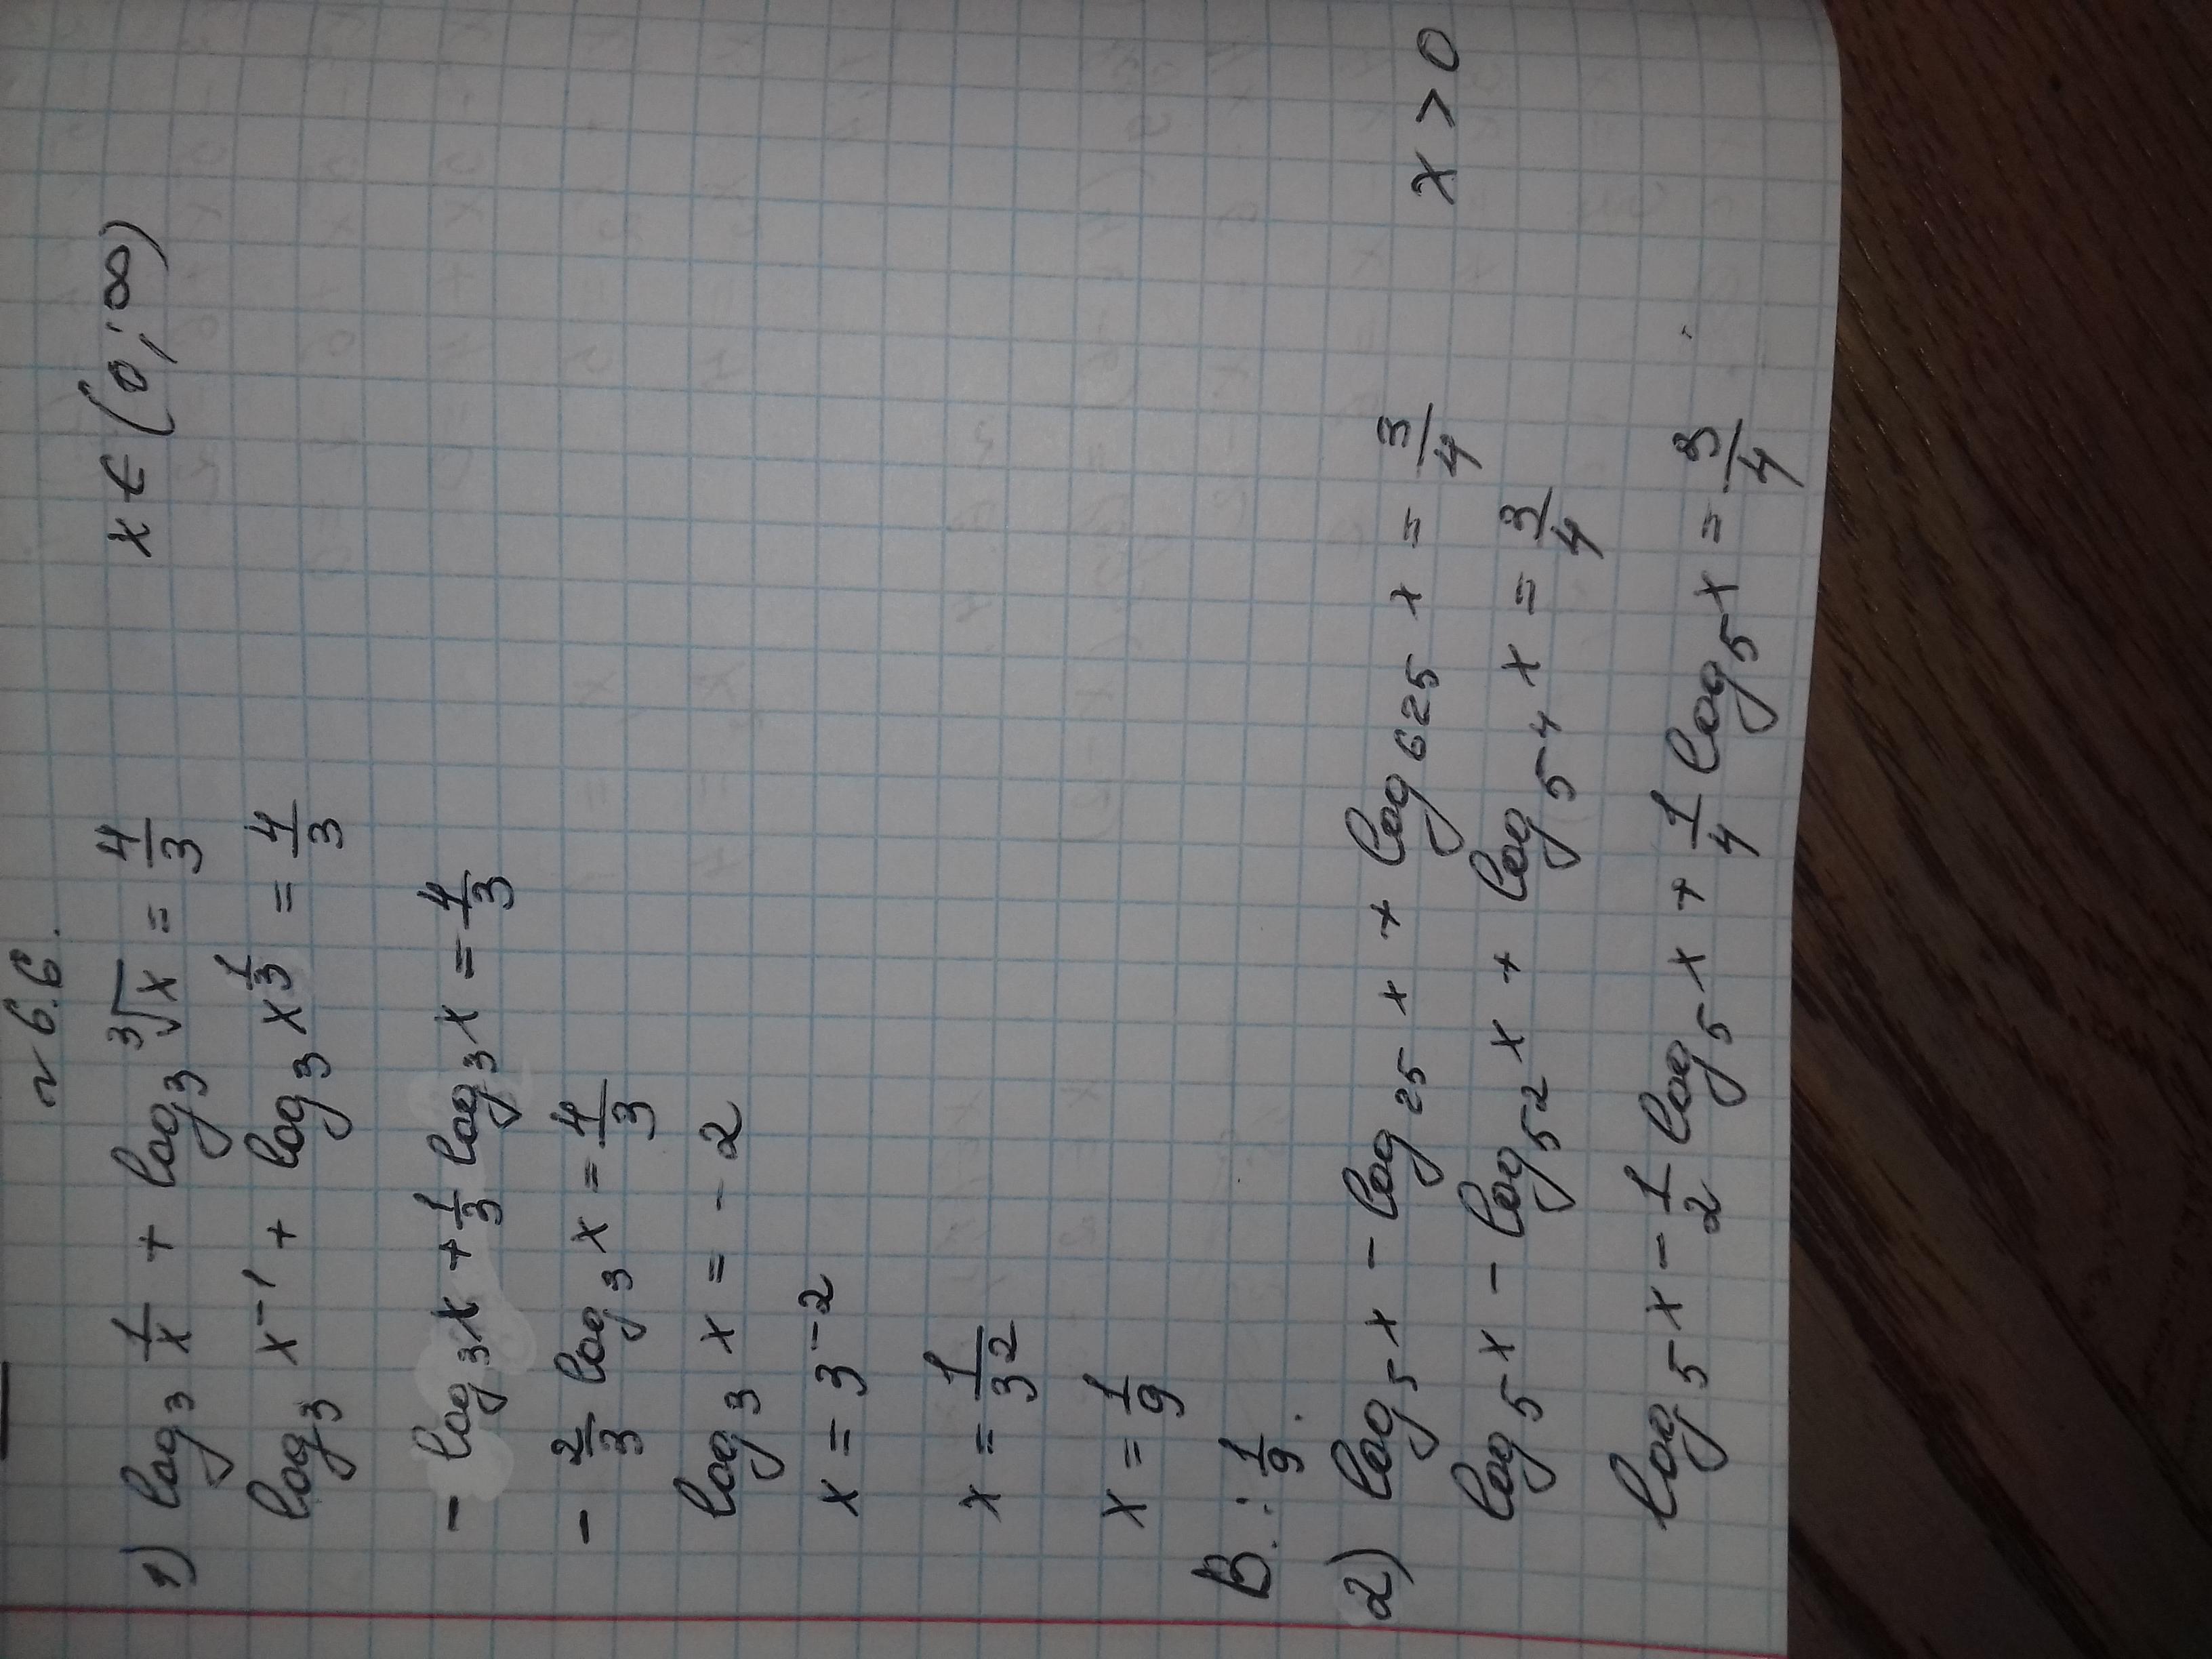 № 6.6.
1) log₃ 1/x + log₃ ³√x = 4/3    x ∈ (0; ∞)
log₃ x⁻¹ + log₃ x^(1/3) = 4/3
- log₃ x + 1/3 log₃ x = 4/3
- 2/3 log₃ x = 4/3
log₃ x = - 2
x = 3⁻²
x = 1/3²
x = 1/9
В.: 1/9.
2) log₅ x - log₂₅ x + log₆₂₅ x = 3/4    x > 0
log₅ x - log_(5²) x + log_(5⁴) x = 3/4
log₅ x - 1/2 log₅ x + 1/4 log₅ x = 3/4